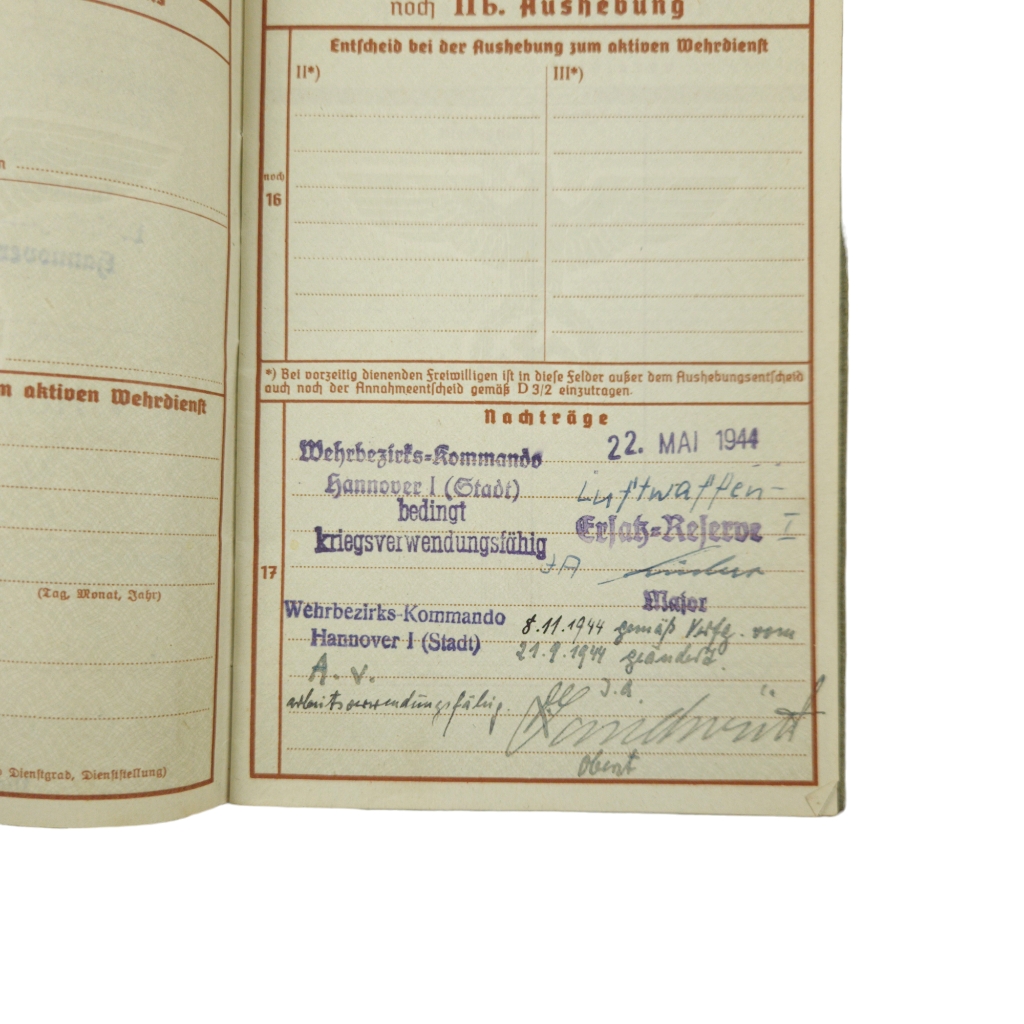 m aktiven Wehrdienst
(Tag, Monat, Jahr)
Dienstgrad, Dienststellung)
noch IIb. Aushebung
Entscheid bei der Aushebung zum aktiven Wehrdienst
II*)
III*)
noch
16
*) Bei vorzeitig dienenden Freiwilligen ist in diese Felder außer dem Aushebungsentscheid
auch noch der Annahmeentscheid gemäß D 3/2 einzutragen.
Nachträge
17
Wehrbezirks-Kommando
Hannover I (Stadt)
bedingt
kriegsverwendungsfähig
22. MAI 1944
Luftwaffen-
Ersatz-Reserve I
Major
Wehrbezirks-Kommando
Hannover I (Stadt)
A. v.
arbeitsverwendungsfähig.
8.11.1944 gemäß Verfg. vom
21.9.1944 geändert.